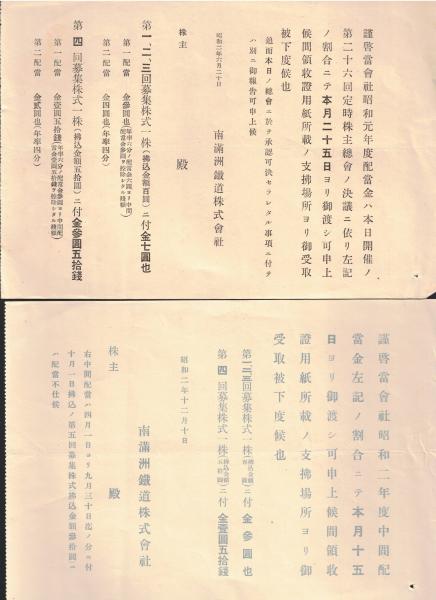 謹啓當會社昭和元年度配當金ハ本日開催ノ
第二十六回定時株主總會ノ決議ニ依リ左記
ノ割合ニテ本月二十五日ヨリ御渡シ可申上
候間領收證用紙所載ノ支拂場所ヨリ御受取
被下度候也
追而本日ノ總會ニ於テ承認可決セラレタル事項ニ付テ
ハ別ニ御報告可申上候
昭和二年六月二十日
南滿洲鐵道株式會社
株主
殿
第一、二、三回募集株式一株(拂込金額百圓)ニ付金七圓也
第一配當 金參圓
第二配當 金四圓也(年率四分)
第四回募集株式一株(拂込金額五拾圓)ニ付金參圓五拾錢
第一配當 金壹圓五拾錢
第二配當 金貳圓也(年率四分)
謹啓當會社昭和二年度中間配
當金左記ノ割合ニテ本月十五
日ヨリ御渡シ可申上候間領收
證用紙所載ノ支拂場所ヨリ御
受取被下度候也
第一、二、三回募集株式一株ニ付 金參圓也
第四回募集株式一株ニ付 金壹圓五拾錢
昭和二年十二月十日
南滿洲鐵道株式會社
株主
殿
右中間配當ハ四月一日ヨリ九月三十日迄ノ分ニ付
十月一日拂込ノ第五回募集株式拂込金額參拾圓ニ
ハ配當不仕候